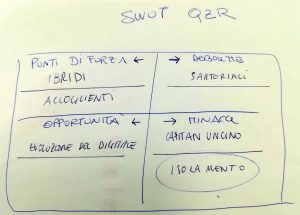 SWOT QZR
PUNTI DI FORZA ← → DEBOLEZZE
IBRIDI SARTORIALI
ACCOGLIENTI
OPPORTUNITÀ ← → MINACCE
EVOLUZIONE DEL DIGITALE CAPITAN UNCINO
ISOLAMENTO